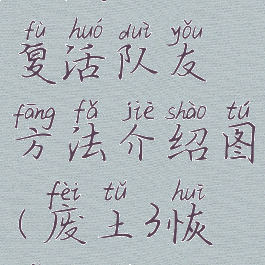 fù huó duì yǒu
复活队友
fāng fǎ jiè shào tú
方法介绍图
fèi tǔ huī
(废土3恢